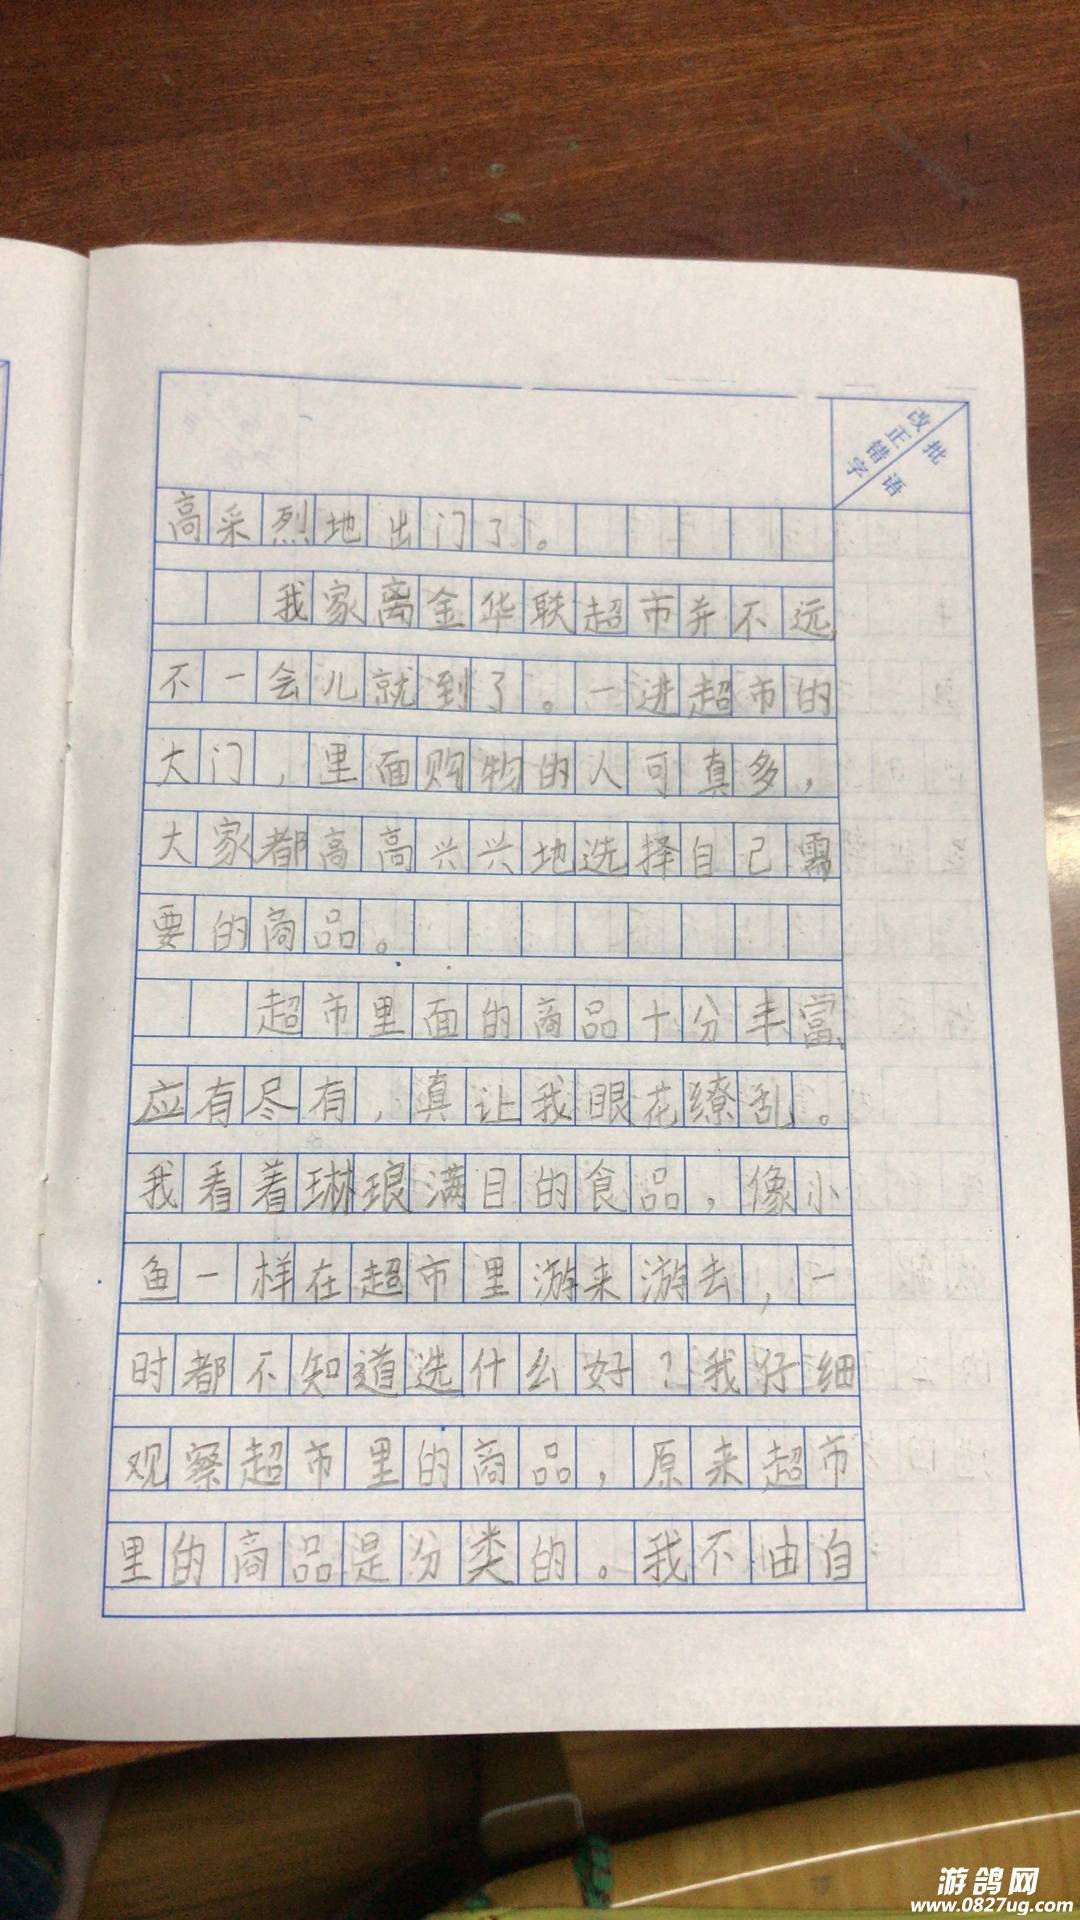 改正错字
批语
高采烈地出门了。
我家离金华联超市并不远
不一会儿就到了。一进超市的
大门，里面购物的人可真多，
大家都高高兴兴地选择自己需
要的商品。
超市里面的商品十分丰富、
应有尽有，真让我眼花缭乱。
我看着琳琅满目的食品，像小
鱼一样在超市里游来游去，一
时都不知道选什么好？我仔细
观察超市里的商品，原来超市
里的商品是分类的。我不由自
游鸽网
www.0827ug.com